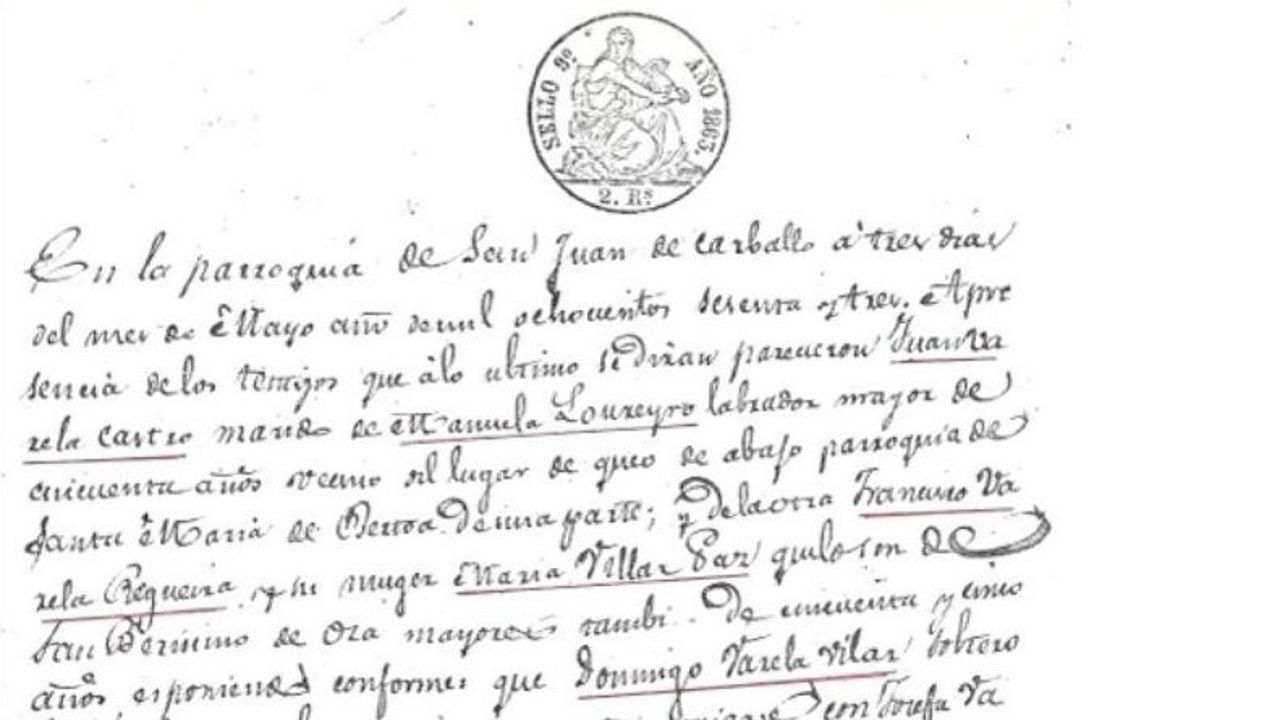 SELLO 9º AÑO 1863.
2. Rˢ
En la parroquia de San Juan de Carballo á tres dias
del mes de Mayo año de mil ochocientos sesenta y tres. Apre
sencia de los testigos que álo ultimo se diran parecieron Juan Va
rela Castro marido de Manuela Loureyro labrador mayor de
cincuenta años vecino del lugar de de abajo parroquia de
Santa Maria de Bertoa de una parte; y de la otra Francisco Va
rela Regueira y su muger Maria Villar Par que lo son de
San de Oza mayores tambi. de cincuenta y cinco
años, esponiendo conformes que Domingo Varela Vilar soltero
con Josefa Va